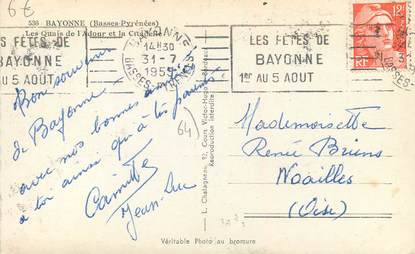 6€
538 BAYONNE (Basses-Pyrénées)
Les Quais de l'Adour et la
LES FÊTES DE
BAYONNE
1er AU 5 AOUT
BAYONNE
14H30
31-7
195
BASSES-PYRÉNÉES
LES FÊTES DE
BAYONNE
1er AU 5 AOUT
12F
RF
Bon souvenir
de Bayonne
avec nos bonnes amitiés
à toi ainsi qu'à tes parents
Camille
Jean-Luc
64
L. Chatagneau, 12, Cours Victor-Hugo, Bordeaux
Reproduction interdite
Mademoiselle
Renée Briens
Noailles
(Oise)
Véritable Photo au bromure